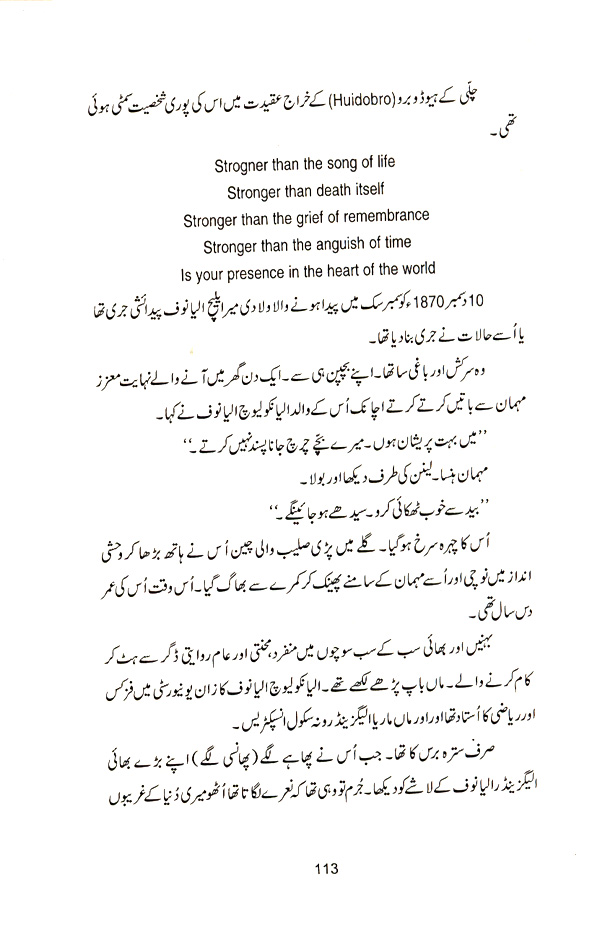 چلّی کے ہیوڈوبرو (Huidobro) کے خراج عقیدت میں اس کی پوری شخصیت سمٹی ہوئی
تھی۔
Strogner than the song of life
Stronger than death itself
Stronger than the grief of remembrance
Stronger than the anguish of time
Is your presence in the heart of the world
10 دسمبر 1870ء کو سمبرسک میں پیدا ہونے والا ولادی میرا یلیچ الیانوف پیدائشی جری تھا
یا اُسے حالات نے جری بنا دیا تھا۔
وہ سرکش اور باغی سا تھا۔ اپنے بچپن ہی سے۔ ایک دن گھر میں آنے والے نہایت معزز
مہمان سے باتیں کرتے کرتے اچانک اُس کے والد الیانکولیوچ الیانوف نے کہا۔
’’میں بہت پریشان ہوں۔ میرے بچّے چرچ جانا پسند نہیں کرتے۔‘‘
مہمان ہنسا۔ لینن کی طرف دیکھا اور بولا۔
’’بید سے خوب ٹھکائی کرو۔ سیدھے ہو جائینگے۔‘‘
اُس کا چہرہ سرخ ہو گیا۔ گلے میں پڑی صلیب والی چین اُس نے ہاتھ بڑھا کر وحشی
انداز میں نوچی اور اُسے مہمان کے سامنے پھینک کر کمرے سے بھاگ گیا۔ اُس وقت اُس کی عمر
دس سال تھی۔
بہنیں اور بھائی سب کے سب سوچوں میں منفرد، محنتی اور عام روایتی ڈگر سے ہٹ کر
کام کرنے والے۔ ماں باپ پڑھے لکھے تھے۔ الیانکولیوچ الیانوف کا زان یونیورسٹی میں فزکس
اور ریاضی کا اُستاد تھا اور اور ماں ماریا الیگزینڈرونہ سکول انسپکٹریس۔
صرف سترہ برس کا تھا۔ جب اُس نے پھاہے لگے (پھانسی لگے) اپنے بڑے بھائی
الیگزینڈر الیانوف کے لاشے کو دیکھا۔ جُرم تو وہی تھا کہ نعرے لگاتا تھا اُٹھو میری دُنیا کے غریبوں
113